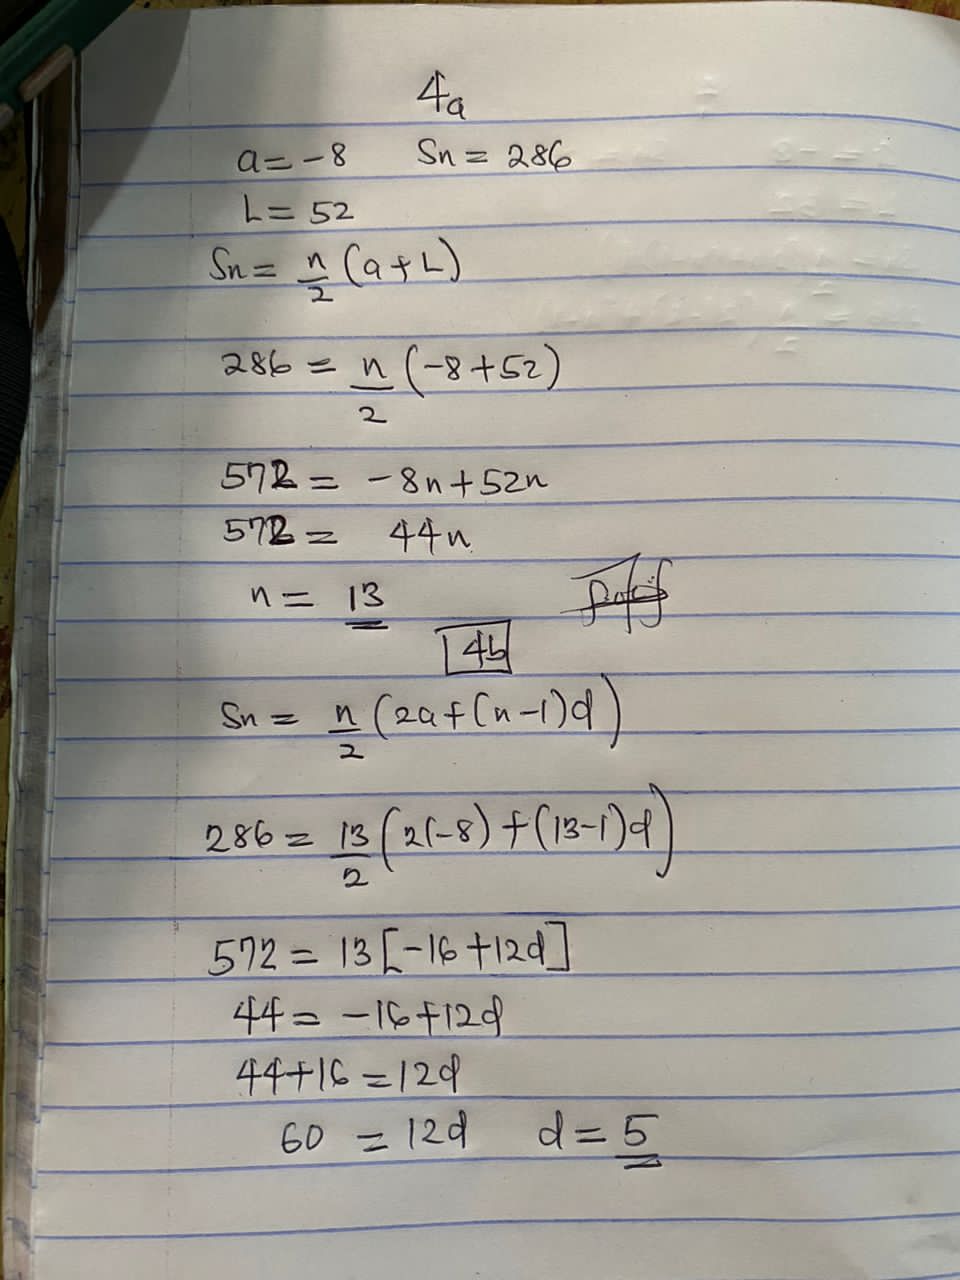 4a
a = -8 Sn = 286
L = 52
Sn = n/2 (a + L)
286 = n/2 (-8 + 52)
572 = -8n + 52n
572 = 44n
n = 13
4b
Sn = n/2 (2a + (n-1)d)
286 = 13/2 (2(-8) + (13-1)d)
572 = 13[-16 + 12d]
44 = -16 + 12d
44 + 16 = 12d
60 = 12d d = 5